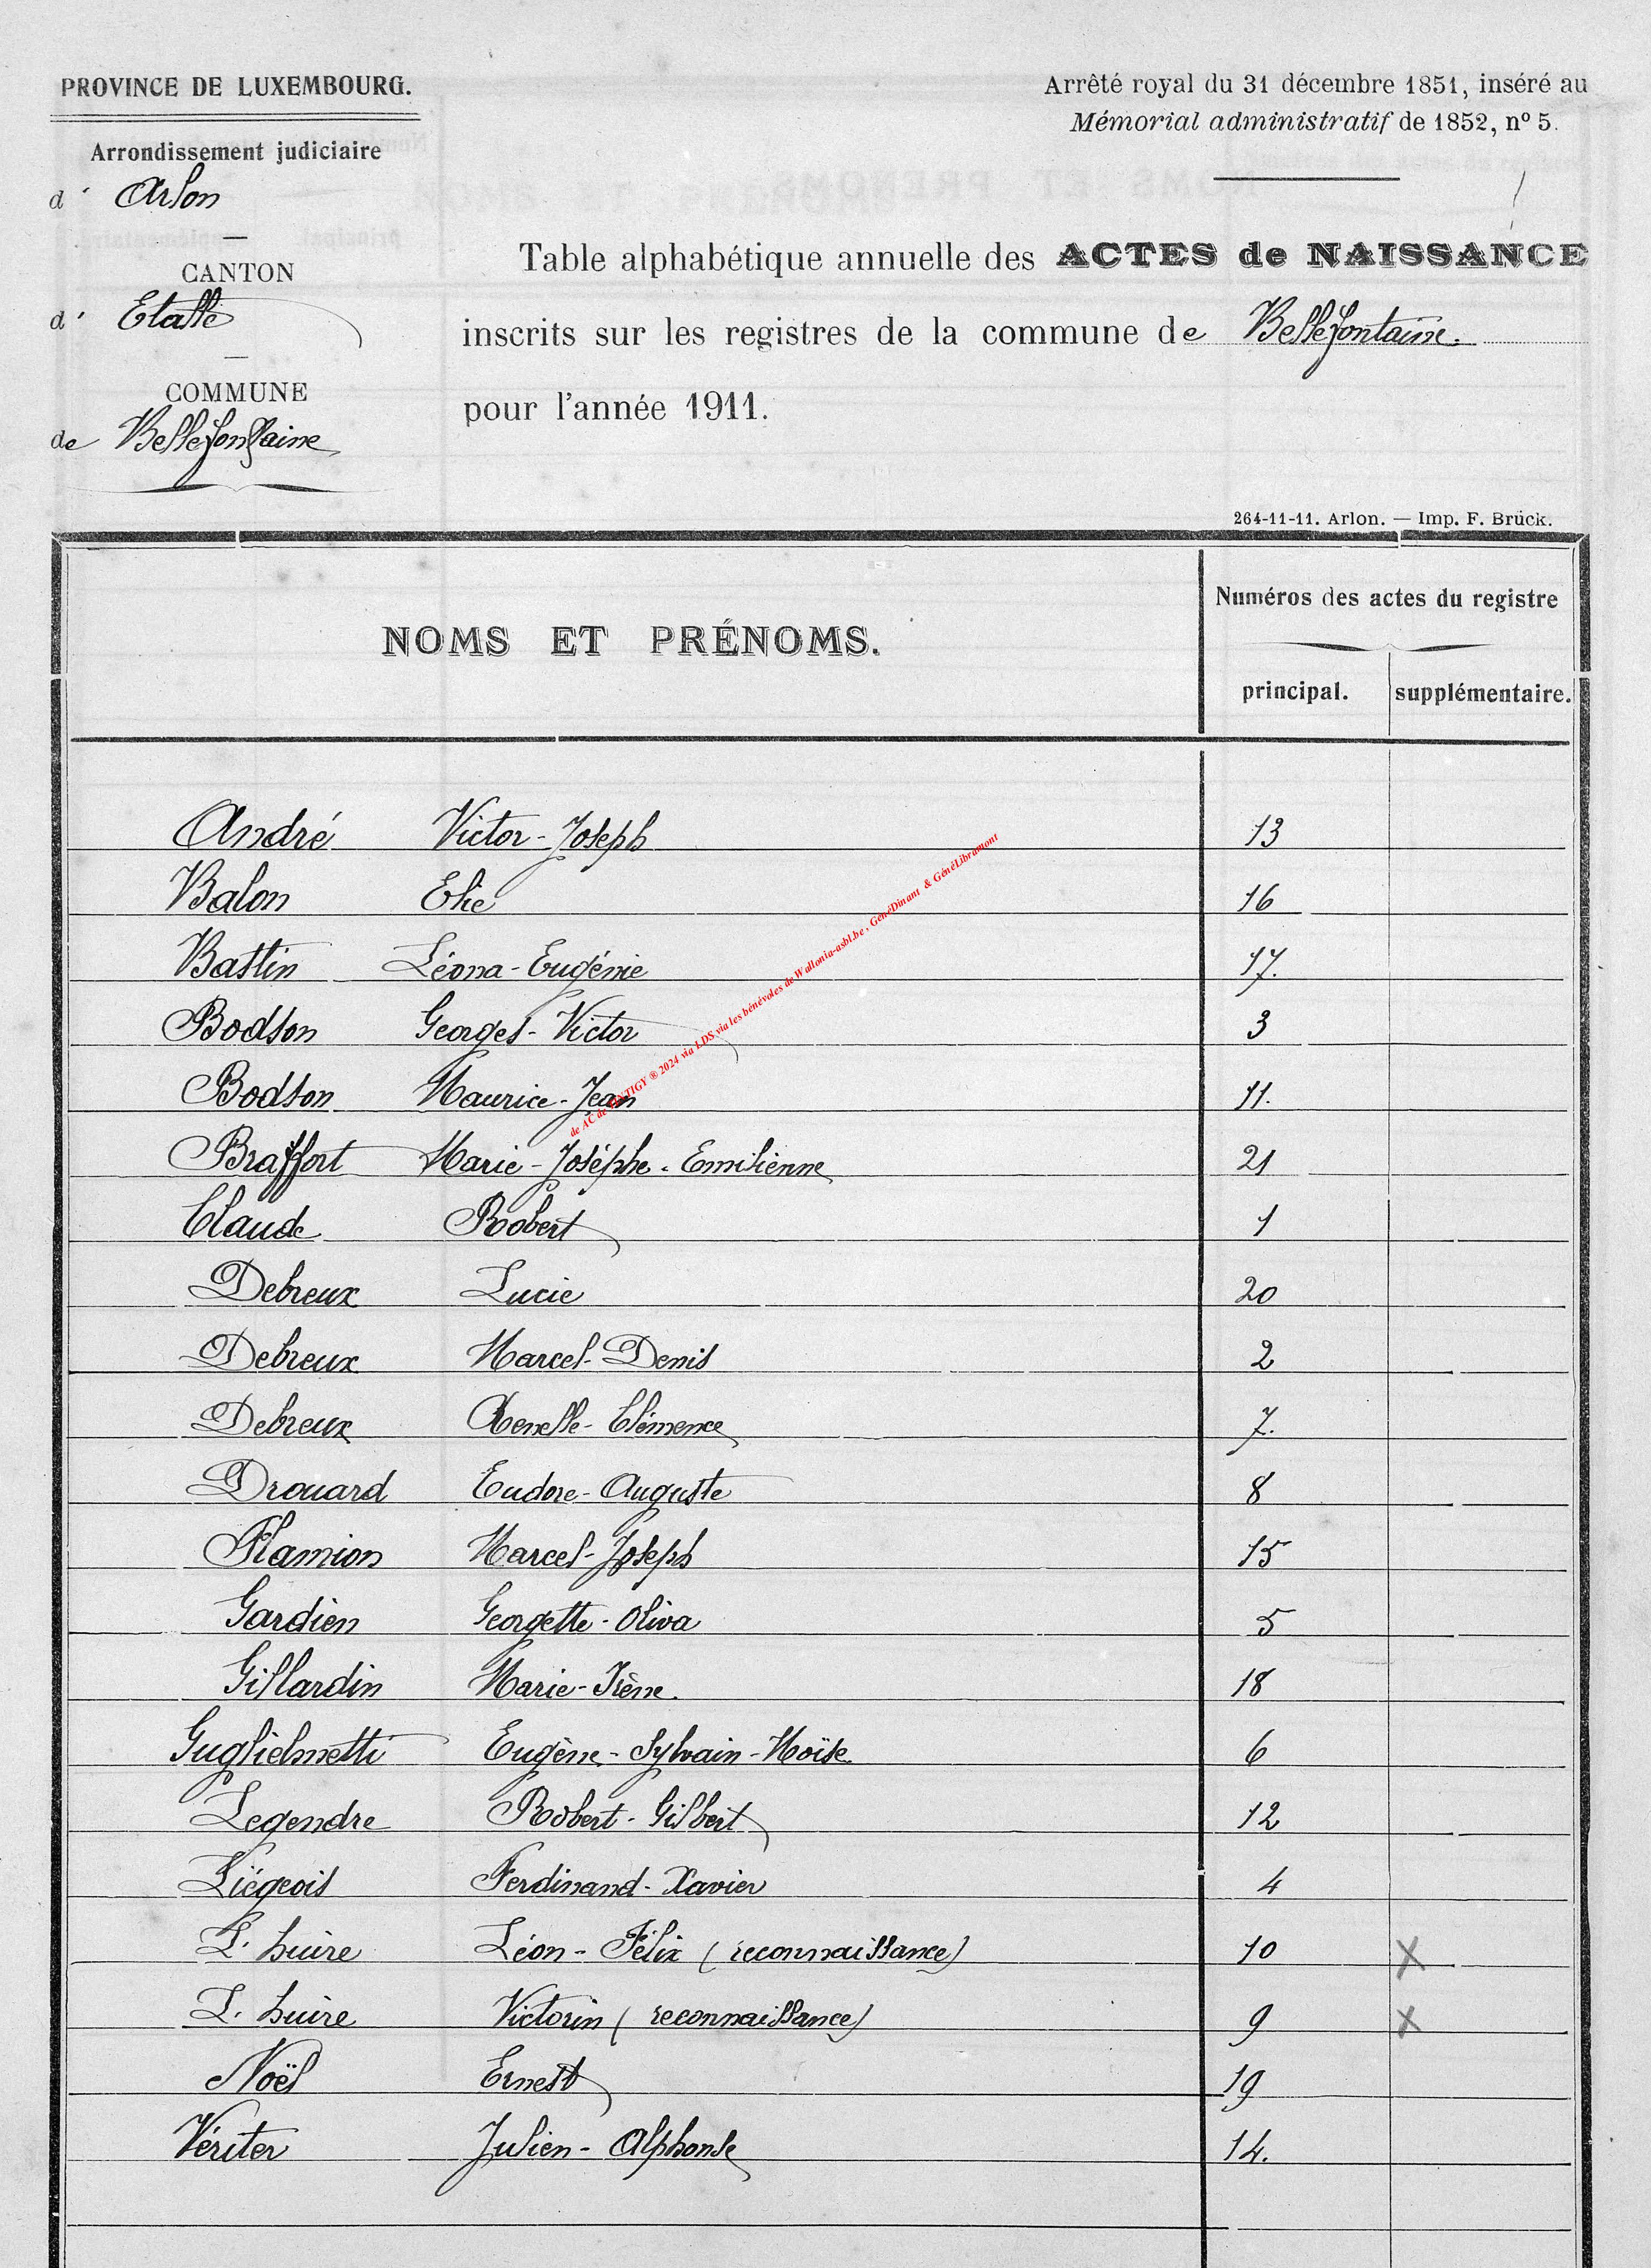 PROVINCE DE LUXEMBOURG.
Arrondissement judiciaire
d' Arlon
CANTON
d' Etalle
COMMUNE
de Bellefontaine
Arrêté royal du 31 décembre 1851, inséré au
Mémorial administratif de 1852, nº 5.
Table alphabétique annuelle des ACTES de NAISSANCE
inscrits sur les registres de la commune de Bellefontaine.
pour l'année 1911.
264-11-11. Arlon. — Imp. F. Brück.
NOMS ET PRÉNOMS.
Numéros des actes du registre
principal. supplémentaire.
André Victor-Joseph 13
Balon Elie 16
Bastin Léona-Eugénie 17.
Bodson Georges-Victor 3
Bodson Maurice-Jean 11.
Braffort Marie-Joséphe-Emilienne 21
Claude Robert 1
Debreux Lucie 20
Debreux Marcel-Denis 2
Debreux Renelle-Clémence 7.
Drouard Eudore-Auguste 8
Flamion Marcel-Joseph 15
Gardien Georgette-Oliva 5
Gillardin Marie-Irène. 18
Guglielmetti Eugène-Sylvain-Moïse. 6
Legendre Robert-Gilbert 12
Liégeois Ferdinand-Xavier 4
L'huire Léon-Félix (reconnaissance) 10 X
L'huire Victorin (reconnaissance) 9 X
Noël Ernest 19
Vériter Julien-Alphonse 14.
de AC de TINTIGY ® 2024 via LDS via les bénévoles de Wallonia-asbl.be, GénéDinant & GénéLibramont